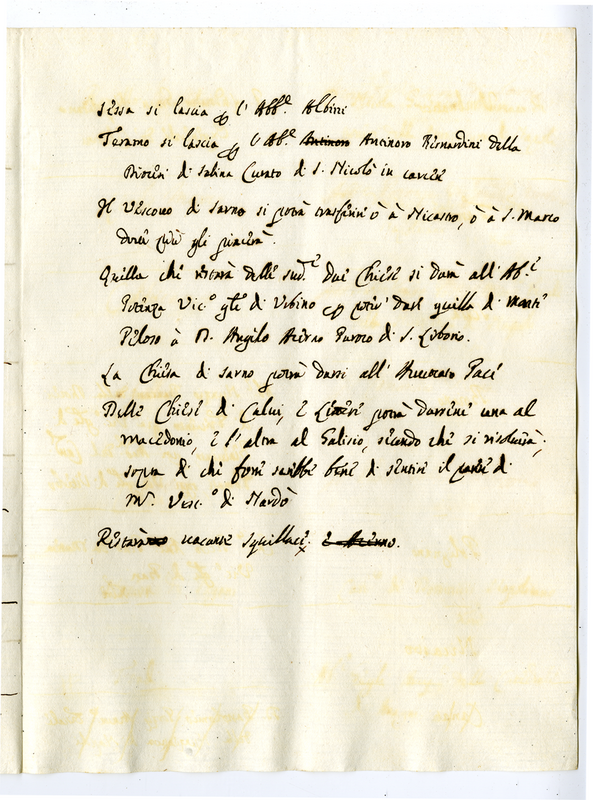 Sessa si lascia p l'Abb.e Albini
Teramo si lascia p l'Ab.e Antinoro Antinoro Bernardini della
Diocesi di Sabina Curato di S. Nicolò in carcere
Il Vescovo di Sarno si potrà trasferire ò à Nicastro, ò à S. Marco
dove più gli piacerà.
Quella che resterà delle sud.e due Chiese si darà all'Ab.e
Potenza Vic.o gñle di Urbino p poter dare quella di Monte
Peloso à D. Angelo Aciano Paroco di S. Liborio.
La Chiesa di Sarno potrà darsi all'Avvocato Pace
Delle Chiese di Calvi, e potrà darsene una al
Macedonio, e l'altra al Galisio, secondo che si risolverà,
sopra di che forse sarebbe bene di sentire il parere di
M.r Vesc.o di Nardò
Resterà vacante Squillace.